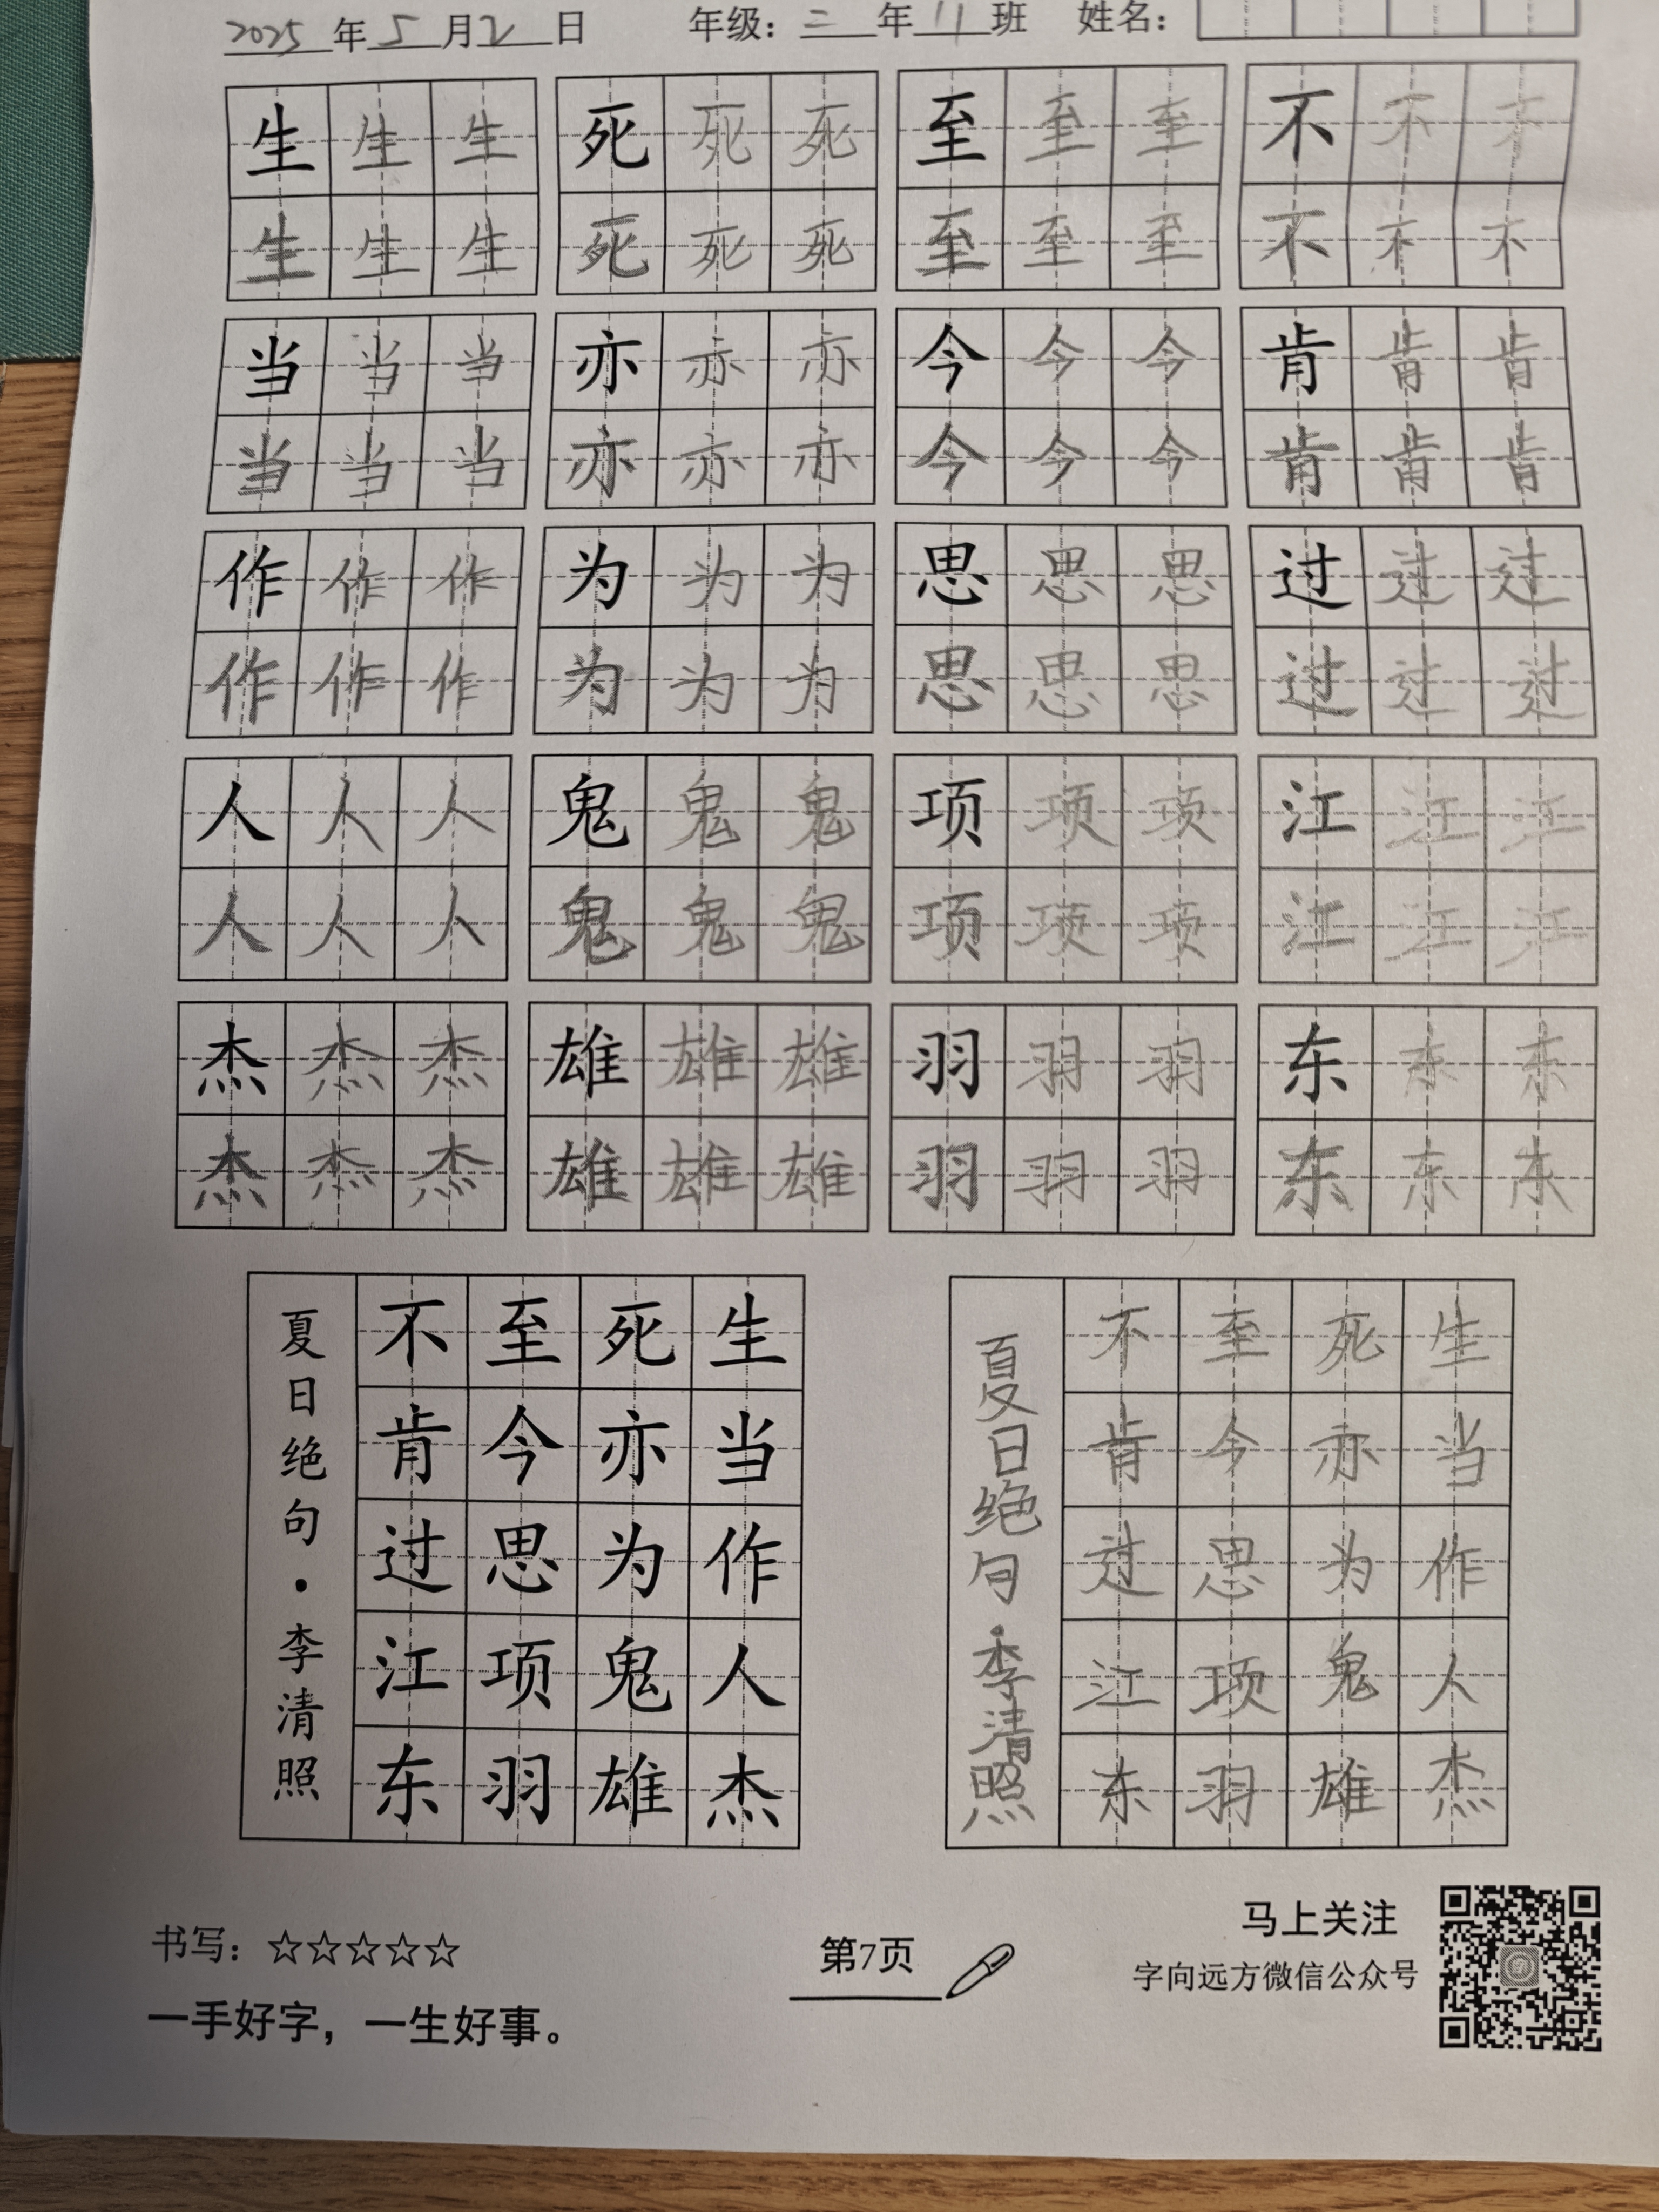 2025年5月2日 年级：三年11班 姓名：
生生生 死死死 至至至 不不不
生生生 死死死 至至至 不不不
当当当 亦亦亦 今今今 肯肯肯
当当当 亦亦亦 今今今 肯肯肯
作作作 为为为 思思思 过过过
作作作 为为为 思思思 过过过
人人人 鬼鬼鬼 项项项 江江江
人人人 鬼鬼鬼 项项项 江江江
杰杰杰 雄雄雄 羽羽羽 东东东
杰杰杰 雄雄雄 羽羽羽 东东东
生当作人杰
死亦为鬼雄
至今思项羽
不肯过江东
夏日绝句·李清照
生当作人杰
死亦为鬼雄
至今思项羽
不肯过江东
夏日绝句·李清照
书写：☆☆☆☆☆
一手好字，一生好事。
第7页
马上关注
字向远方微信公众号